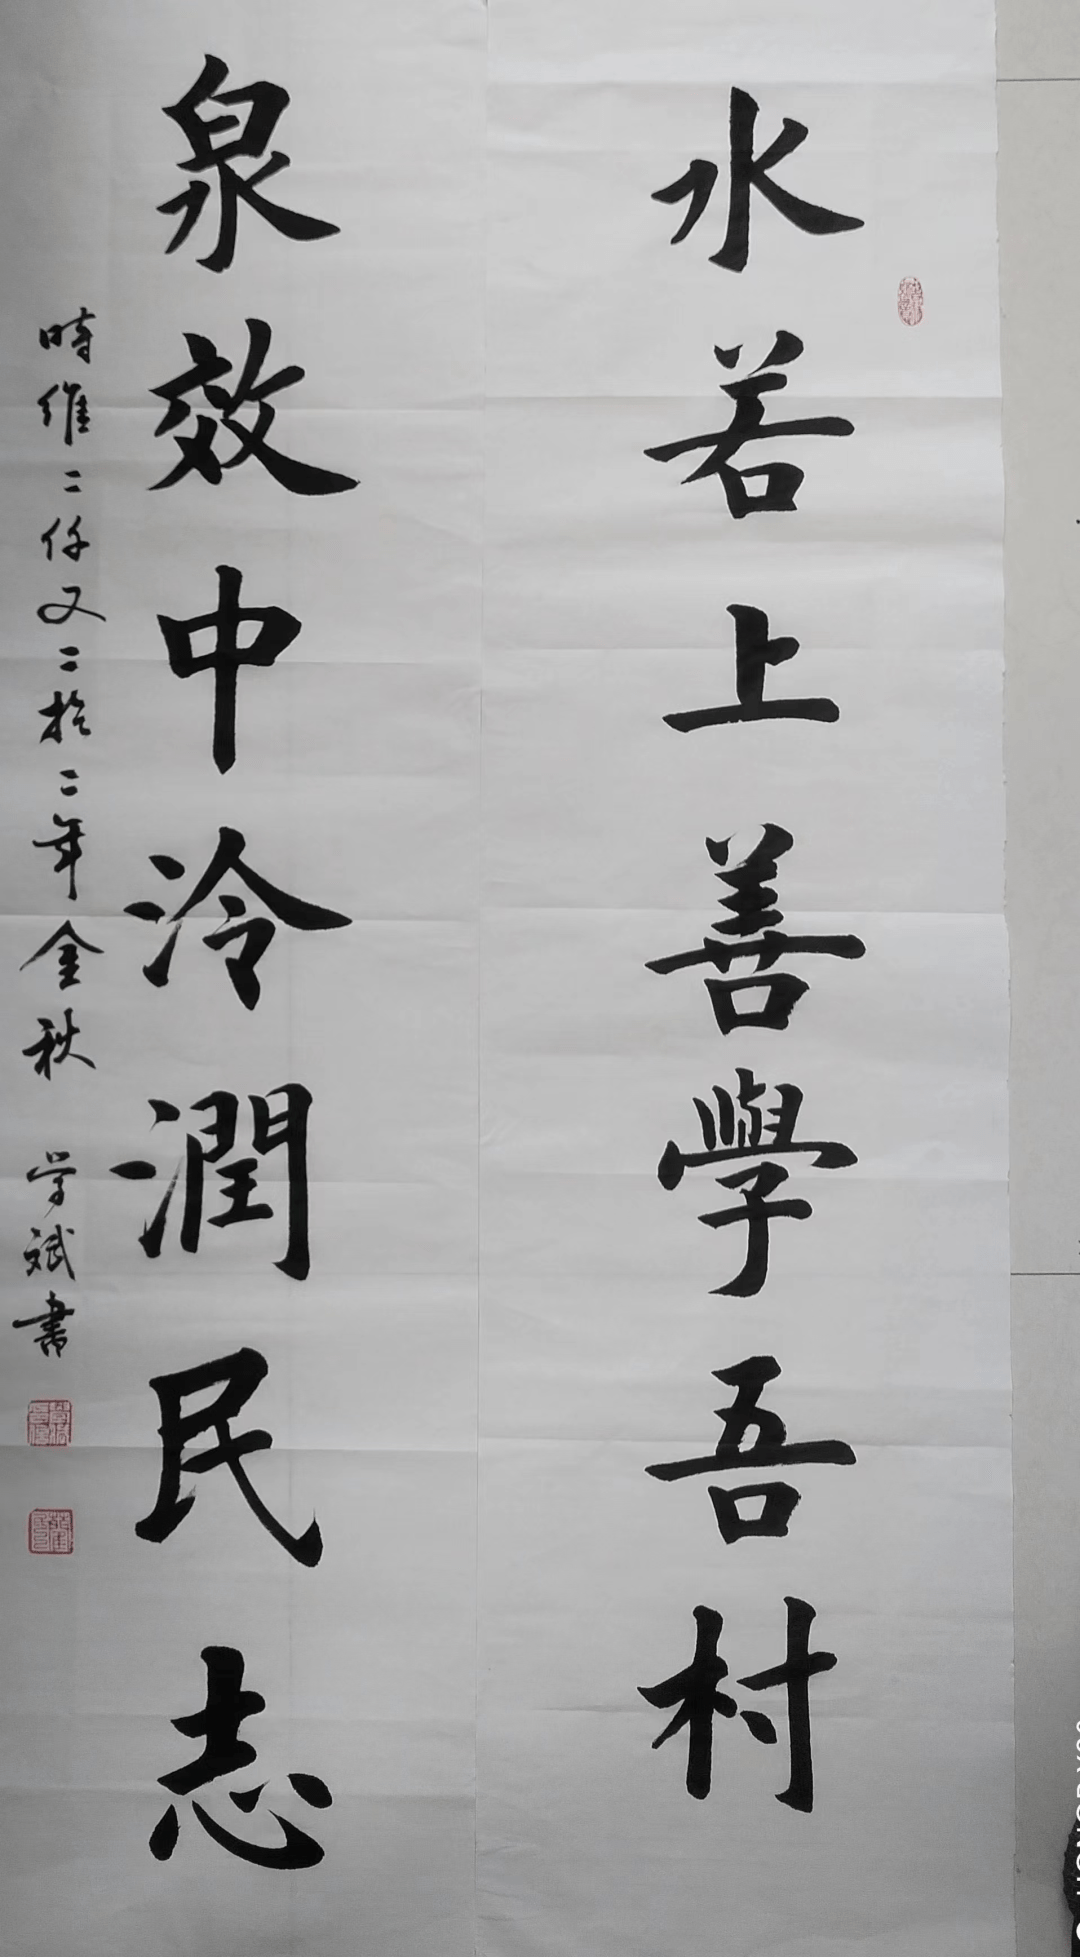 水若上善學吾村
泉效中泠潤民志
時維二仟又二拾二年金秋 学斌書